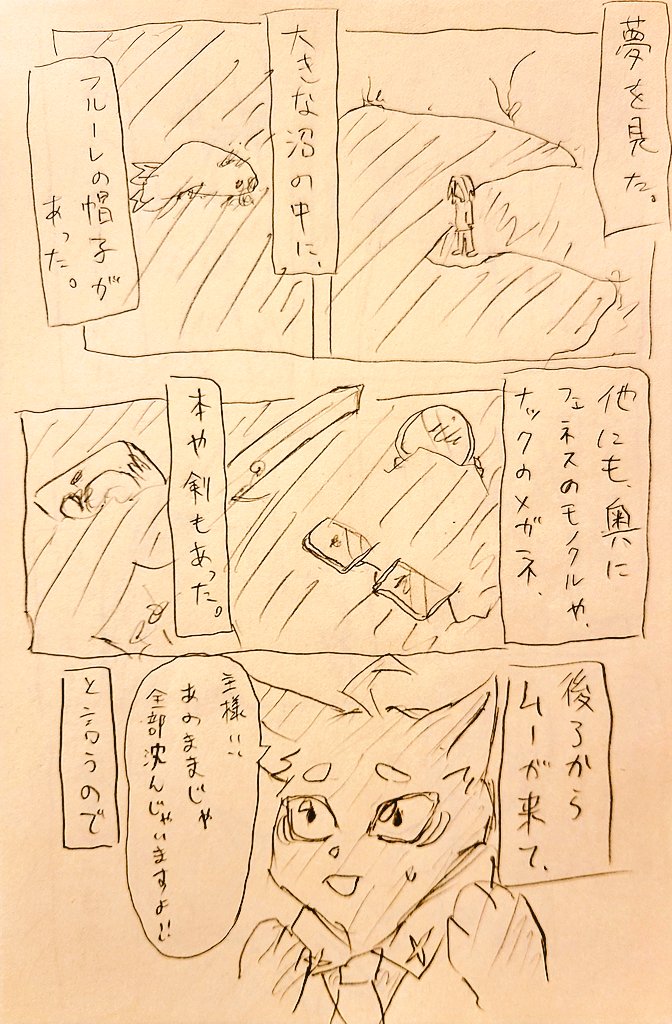 夢を見た。
大きな沼の中に、
フルーレの帽子が
あった。
他にも、奥に
フェネスのモノクルや、
ナックのメガネ、
本や剣もあった。
後ろから
ムーが来て、
主様!!
あのままじゃ
全部沈んじゃいますよ!!
と言うので